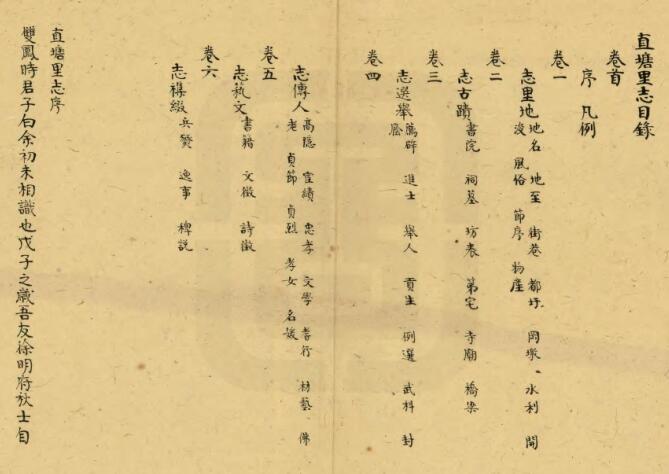 直塘里志目錄
卷首
序 凡例
卷一
志里地 地名 地至 街巷 都圩 岡墩 水利 開
浚 風俗 節序 物產
卷二
志古蹟 書院 祠墓 坊表 第宅 寺廟 橋梁
卷三
志選舉 薦辟 進士 舉人 貢生 例選 武科 封
廕
卷四
志傳人 高隱 宦績 忠孝 文學 耆行 材藝 佛
老 貞節 貞烈 孝女 名媛
卷五
志藝文 書籍 文徵 詩徵
卷六
志襍綴 兵燹 逸事 稗説
直塘里志序
雙鳳時君子勻余初未相識也戊子之歲吾友徐明府秋士自